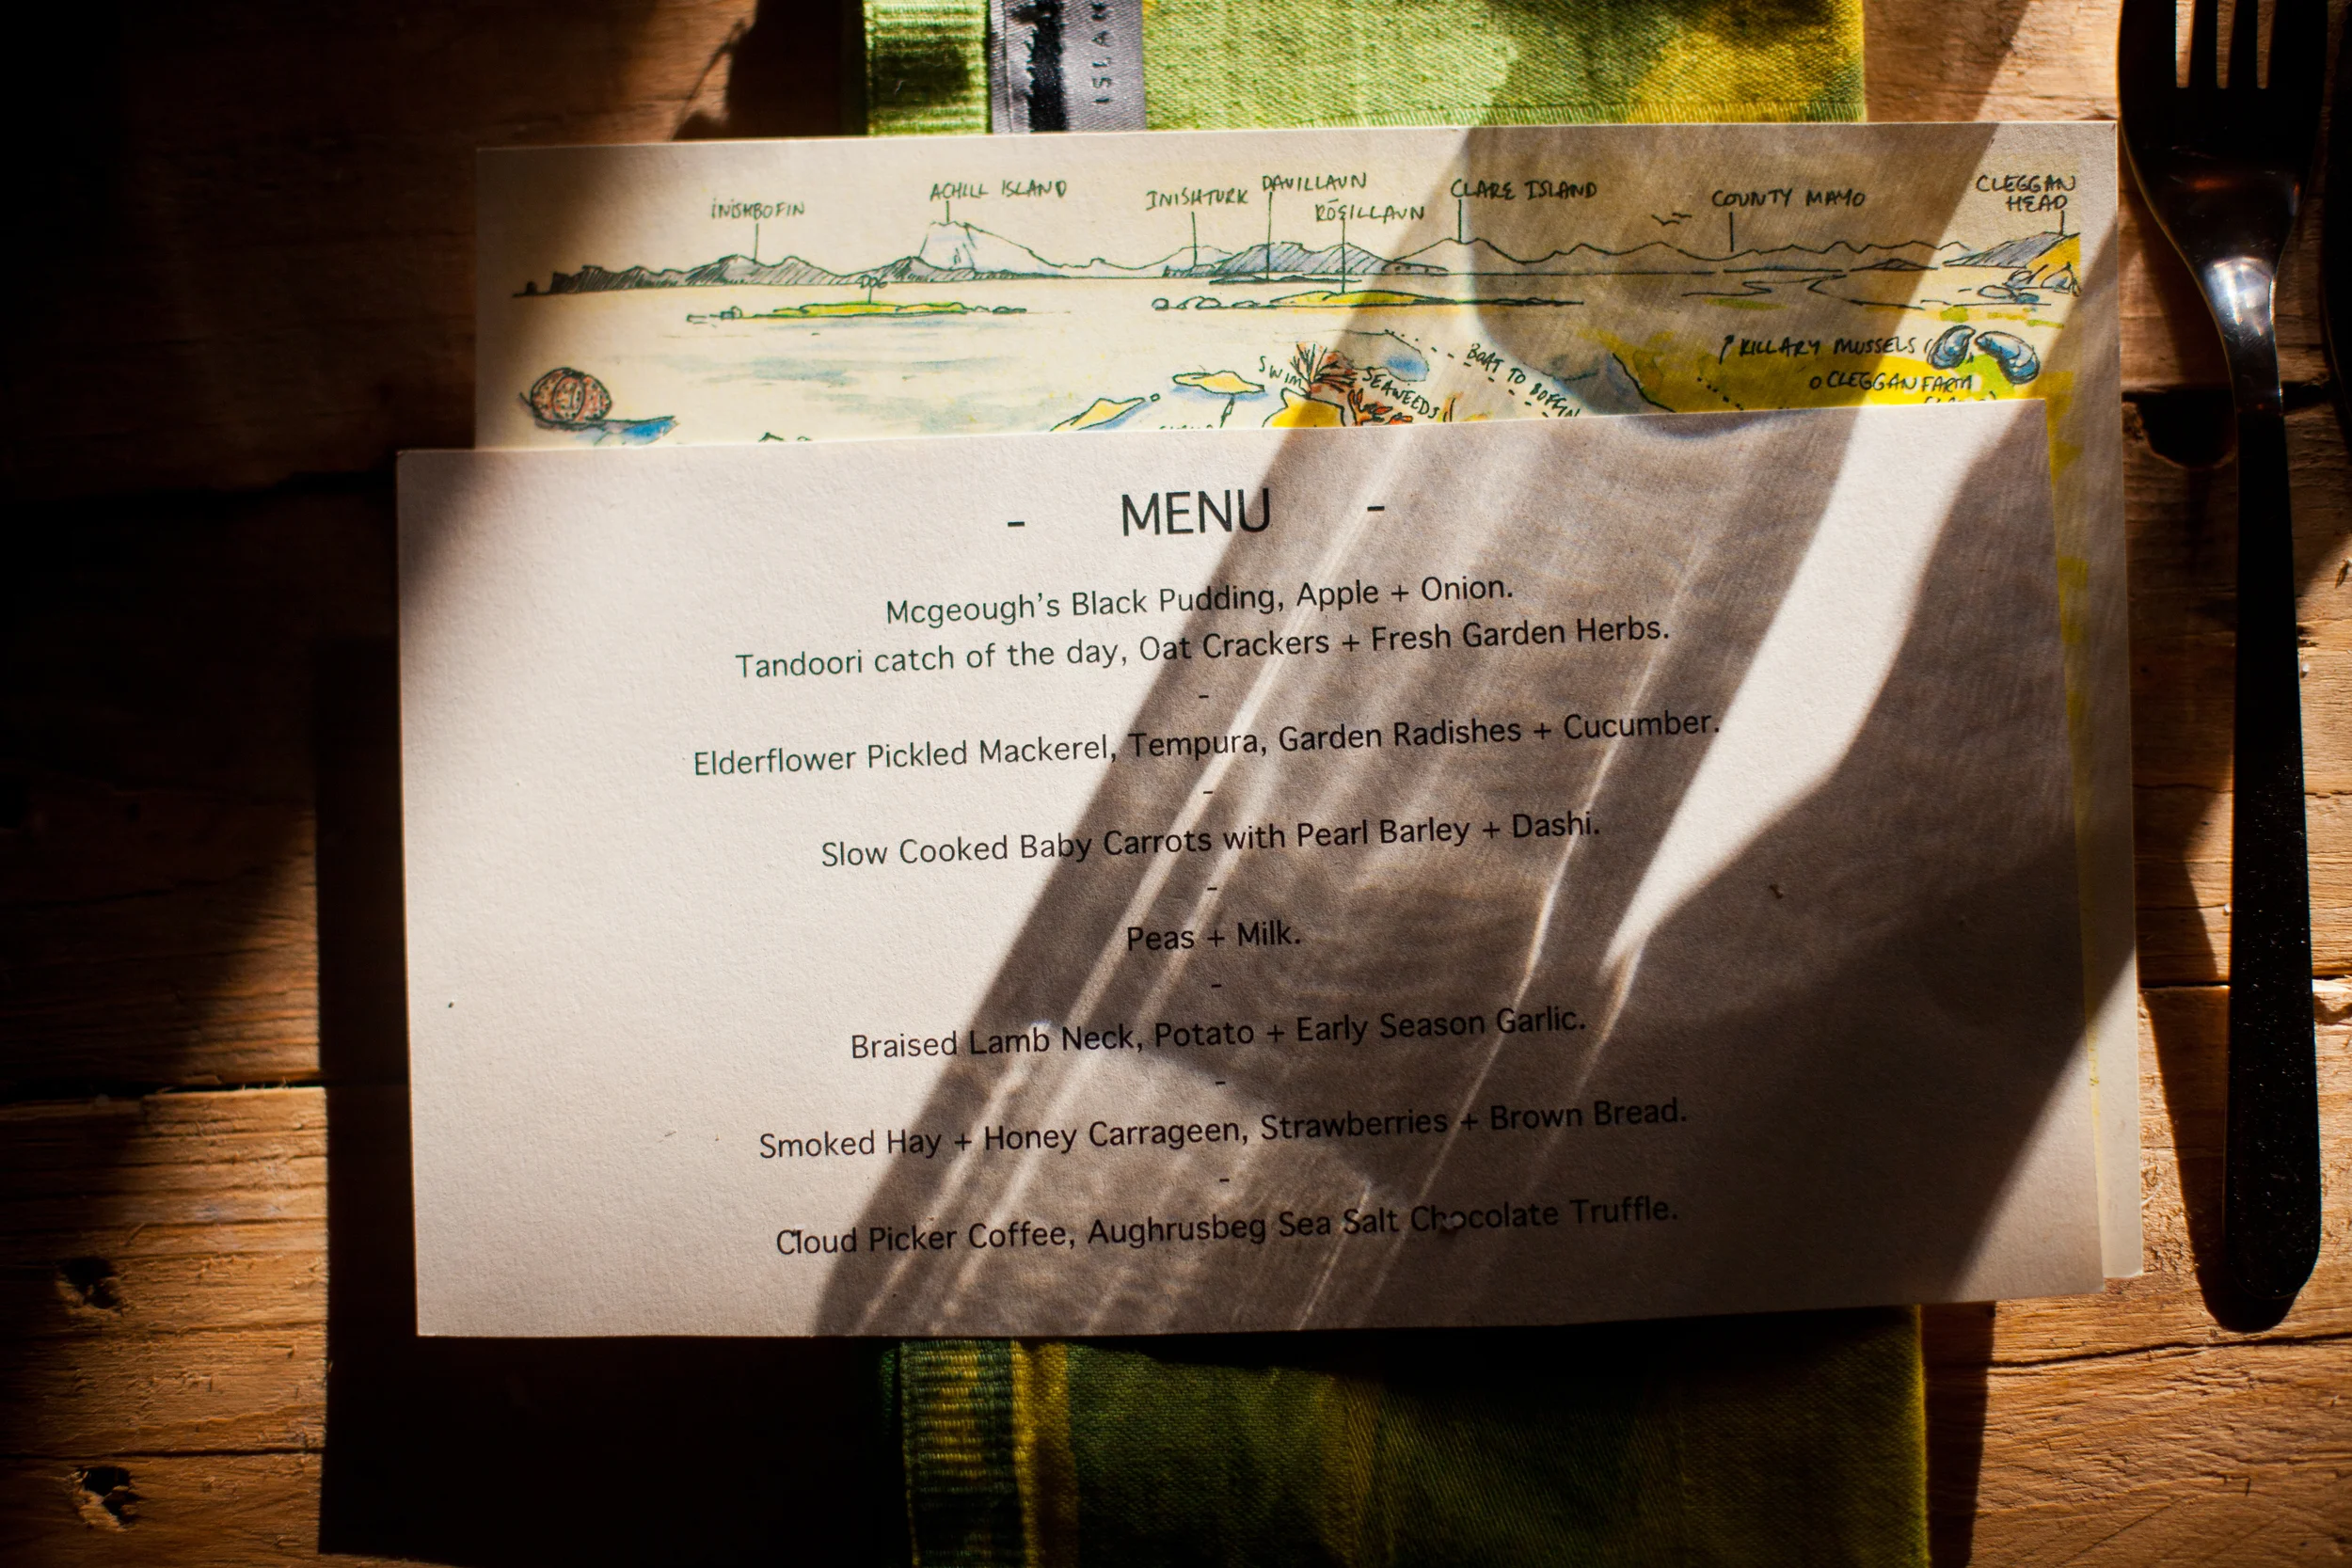 ISLAN
INISHBOFIN
ACHILL ISLAND
INISHTURK
DAVILLAUN
RÓGILLAUN
CLARE ISLAND
COUNTY MAYO
CLEGGAN
HEAD
KILLARY MUSSELS
CLEGGAN FARM
SWIM
SEAWEEDS
BOAT TO BOFFIN
- MENU -
Mcgeough's Black Pudding, Apple + Onion.
Tandoori catch of the day, Oat Crackers + Fresh Garden Herbs.
-
Elderflower Pickled Mackerel, Tempura, Garden Radishes + Cucumber.
-
Slow Cooked Baby Carrots with Pearl Barley + Dashi.
-
Peas + Milk.
-
Braised Lamb Neck, Potato + Early Season Garlic.
-
Smoked Hay + Honey Carrageen, Strawberries + Brown Bread.
-
Cloud Picker Coffee, Aughrusbeg Sea Salt Chocolate Truffle.